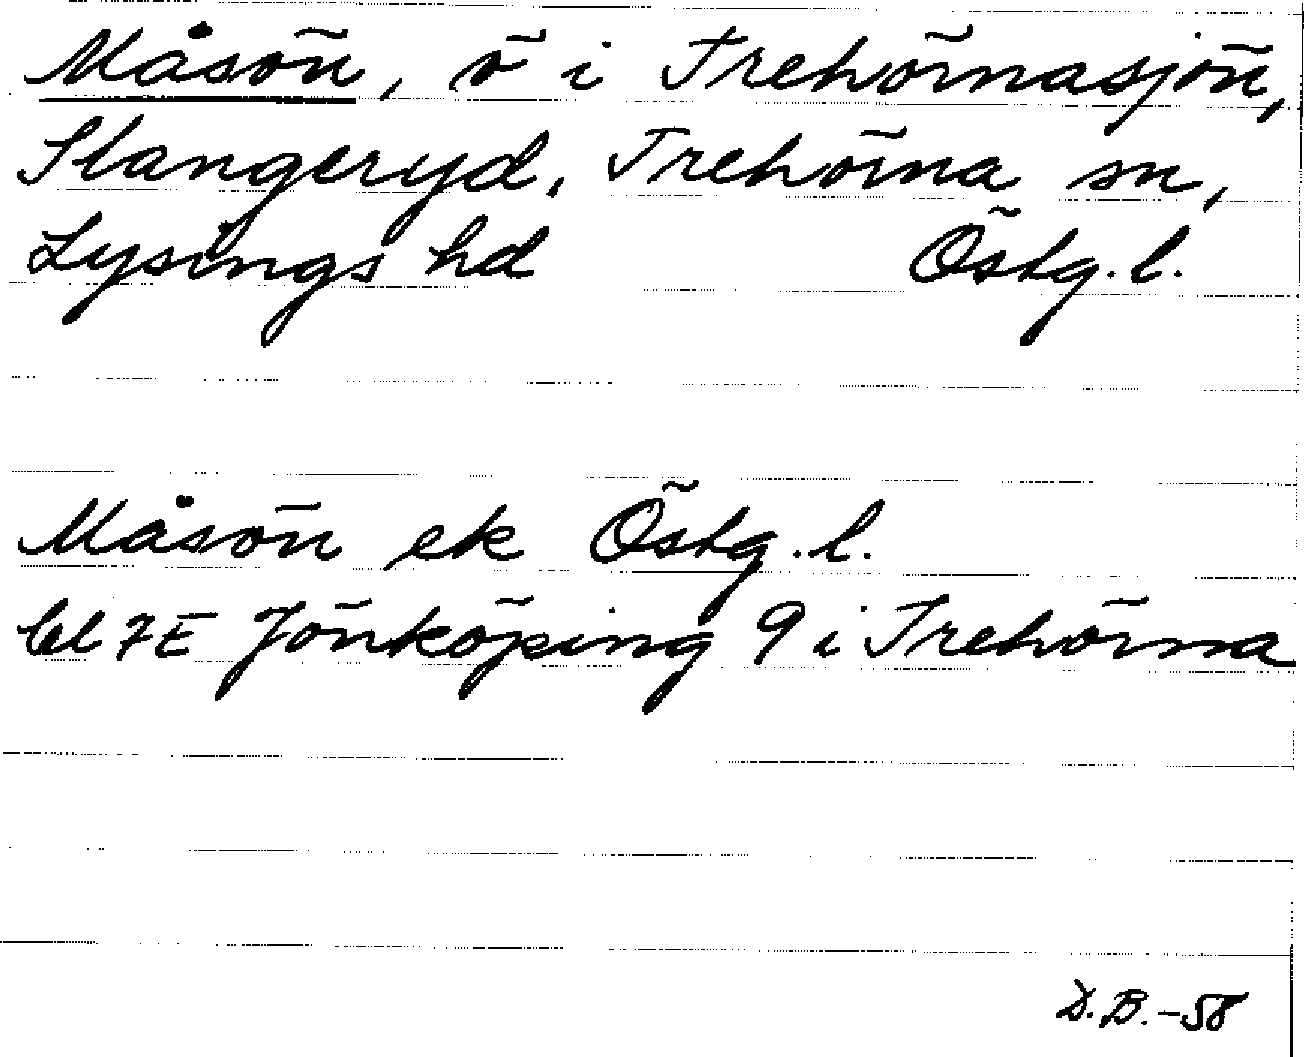 Måsön, ö i Trehörnasjön,
Stangeryd, Trehörna sn,
Lysings hd Östg. l.
Måsön ek Östg. l.
bl 7E Jönköping 9 i Trehörna
D.B.-58